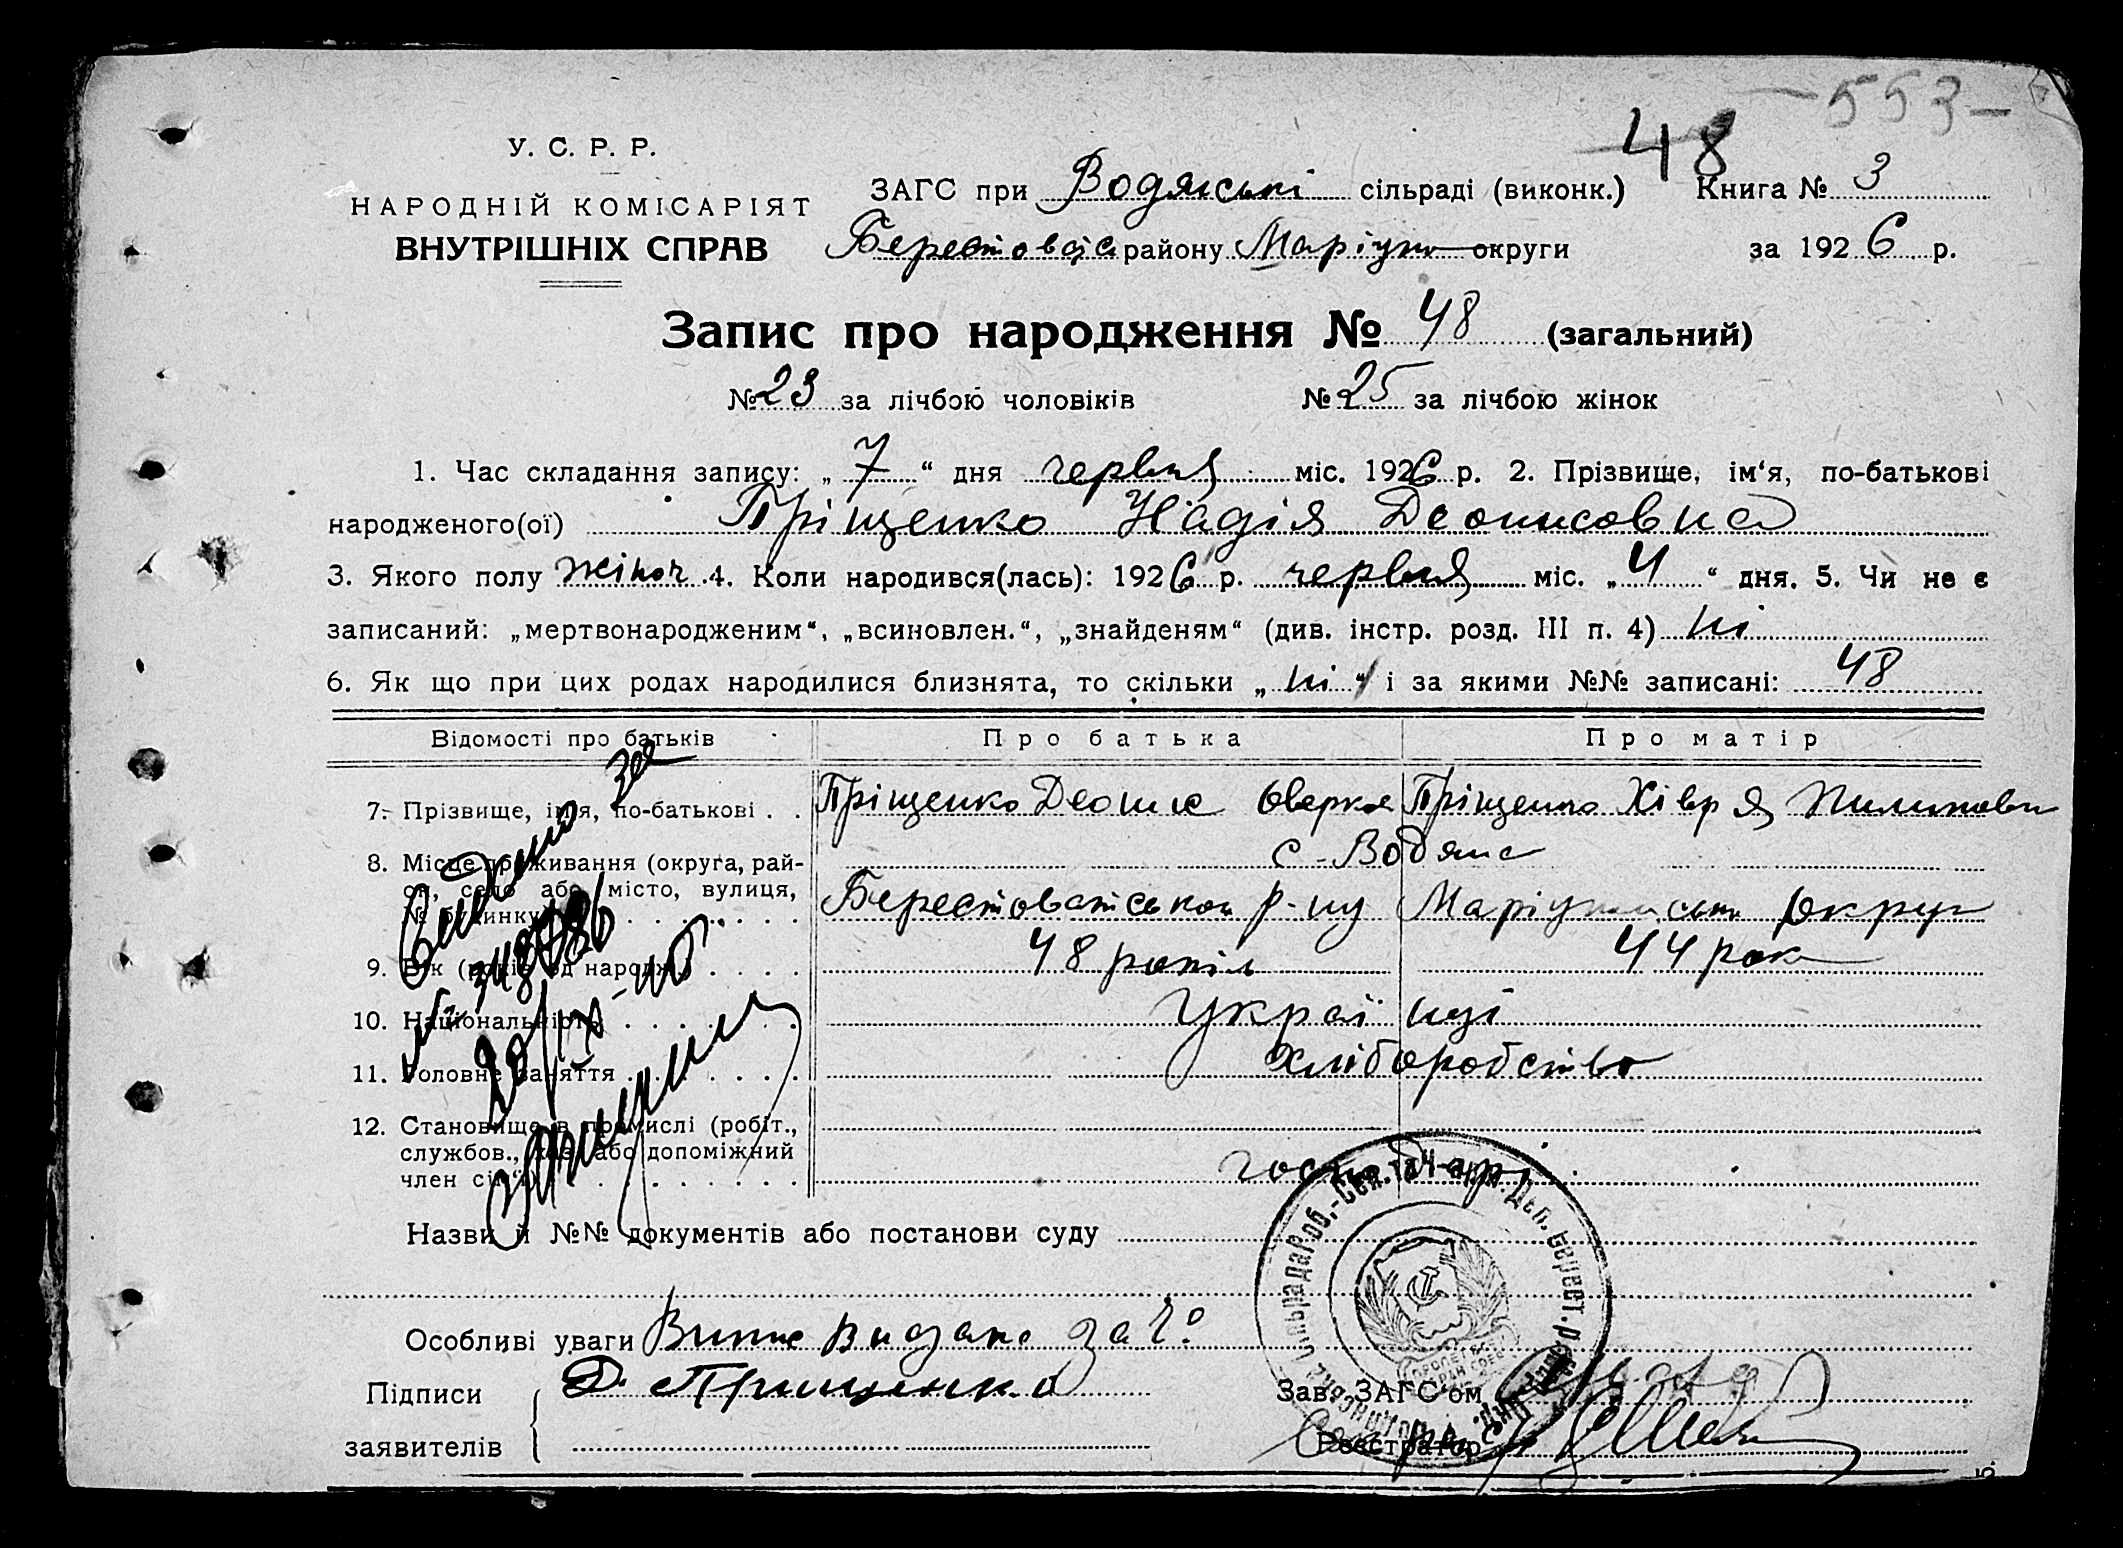 553
48
У. С. Р. Р.
НАРОДНІЙ КОМІСАРІЯТ
ВНУТРІШНІХ СПРАВ
ЗАГС при Водянські сільраді (виконк.) Книга № 3
району Маріуп округи за 1926 р.
Запис про народження № 48 (загальний)
№ 23 за лічбою чоловіків № 25 за лічбою жінок
1. Час складання запису: „ 7 “ дня червня міс. 1926 р. 2. Прізвище, ім‘я, по-батькові
народженого(ої) Пріщенко Надія Деонисовна
3. Якого полу жіноч 4. Коли народився(лась): 1926 р. червня міс. „ 4 “ дня. 5. Чи не є
записаний: „мертвонародженим“, „всиновлен.“, „знайденям“ (див. інстр. розд. III п. 4) ні
6. Як що при цих родах народилися близнята, то скільки „ ні “ і за якими №№ записані: 48
Відомості про батьків Про батька Про матір
7. Прізвище, ім‘я, по-батькові . . Пріщенко Деонис Оверков Пріщенко Хівря
8. Місце проживання (округа, рай-
он, село або місто, вулиця,
№ будинку) с. Водяне
р-ну Маріупільськ округ
9. Вік (років од народж.) 48 років 44 рок
10. Національність Украї нці
11. Головне заняття хліборобство
12. Становище в промислі (робіт.,
службов., хаз. або допоміжний
член сім‘ї)
Назви й №№ документів або постанови суду
Особливі уваги Випис видано за ч.
Підписи Д. Прищенко
заявителів
Зав. ЗАГС‘ом
Реєстратор
Видано за
№